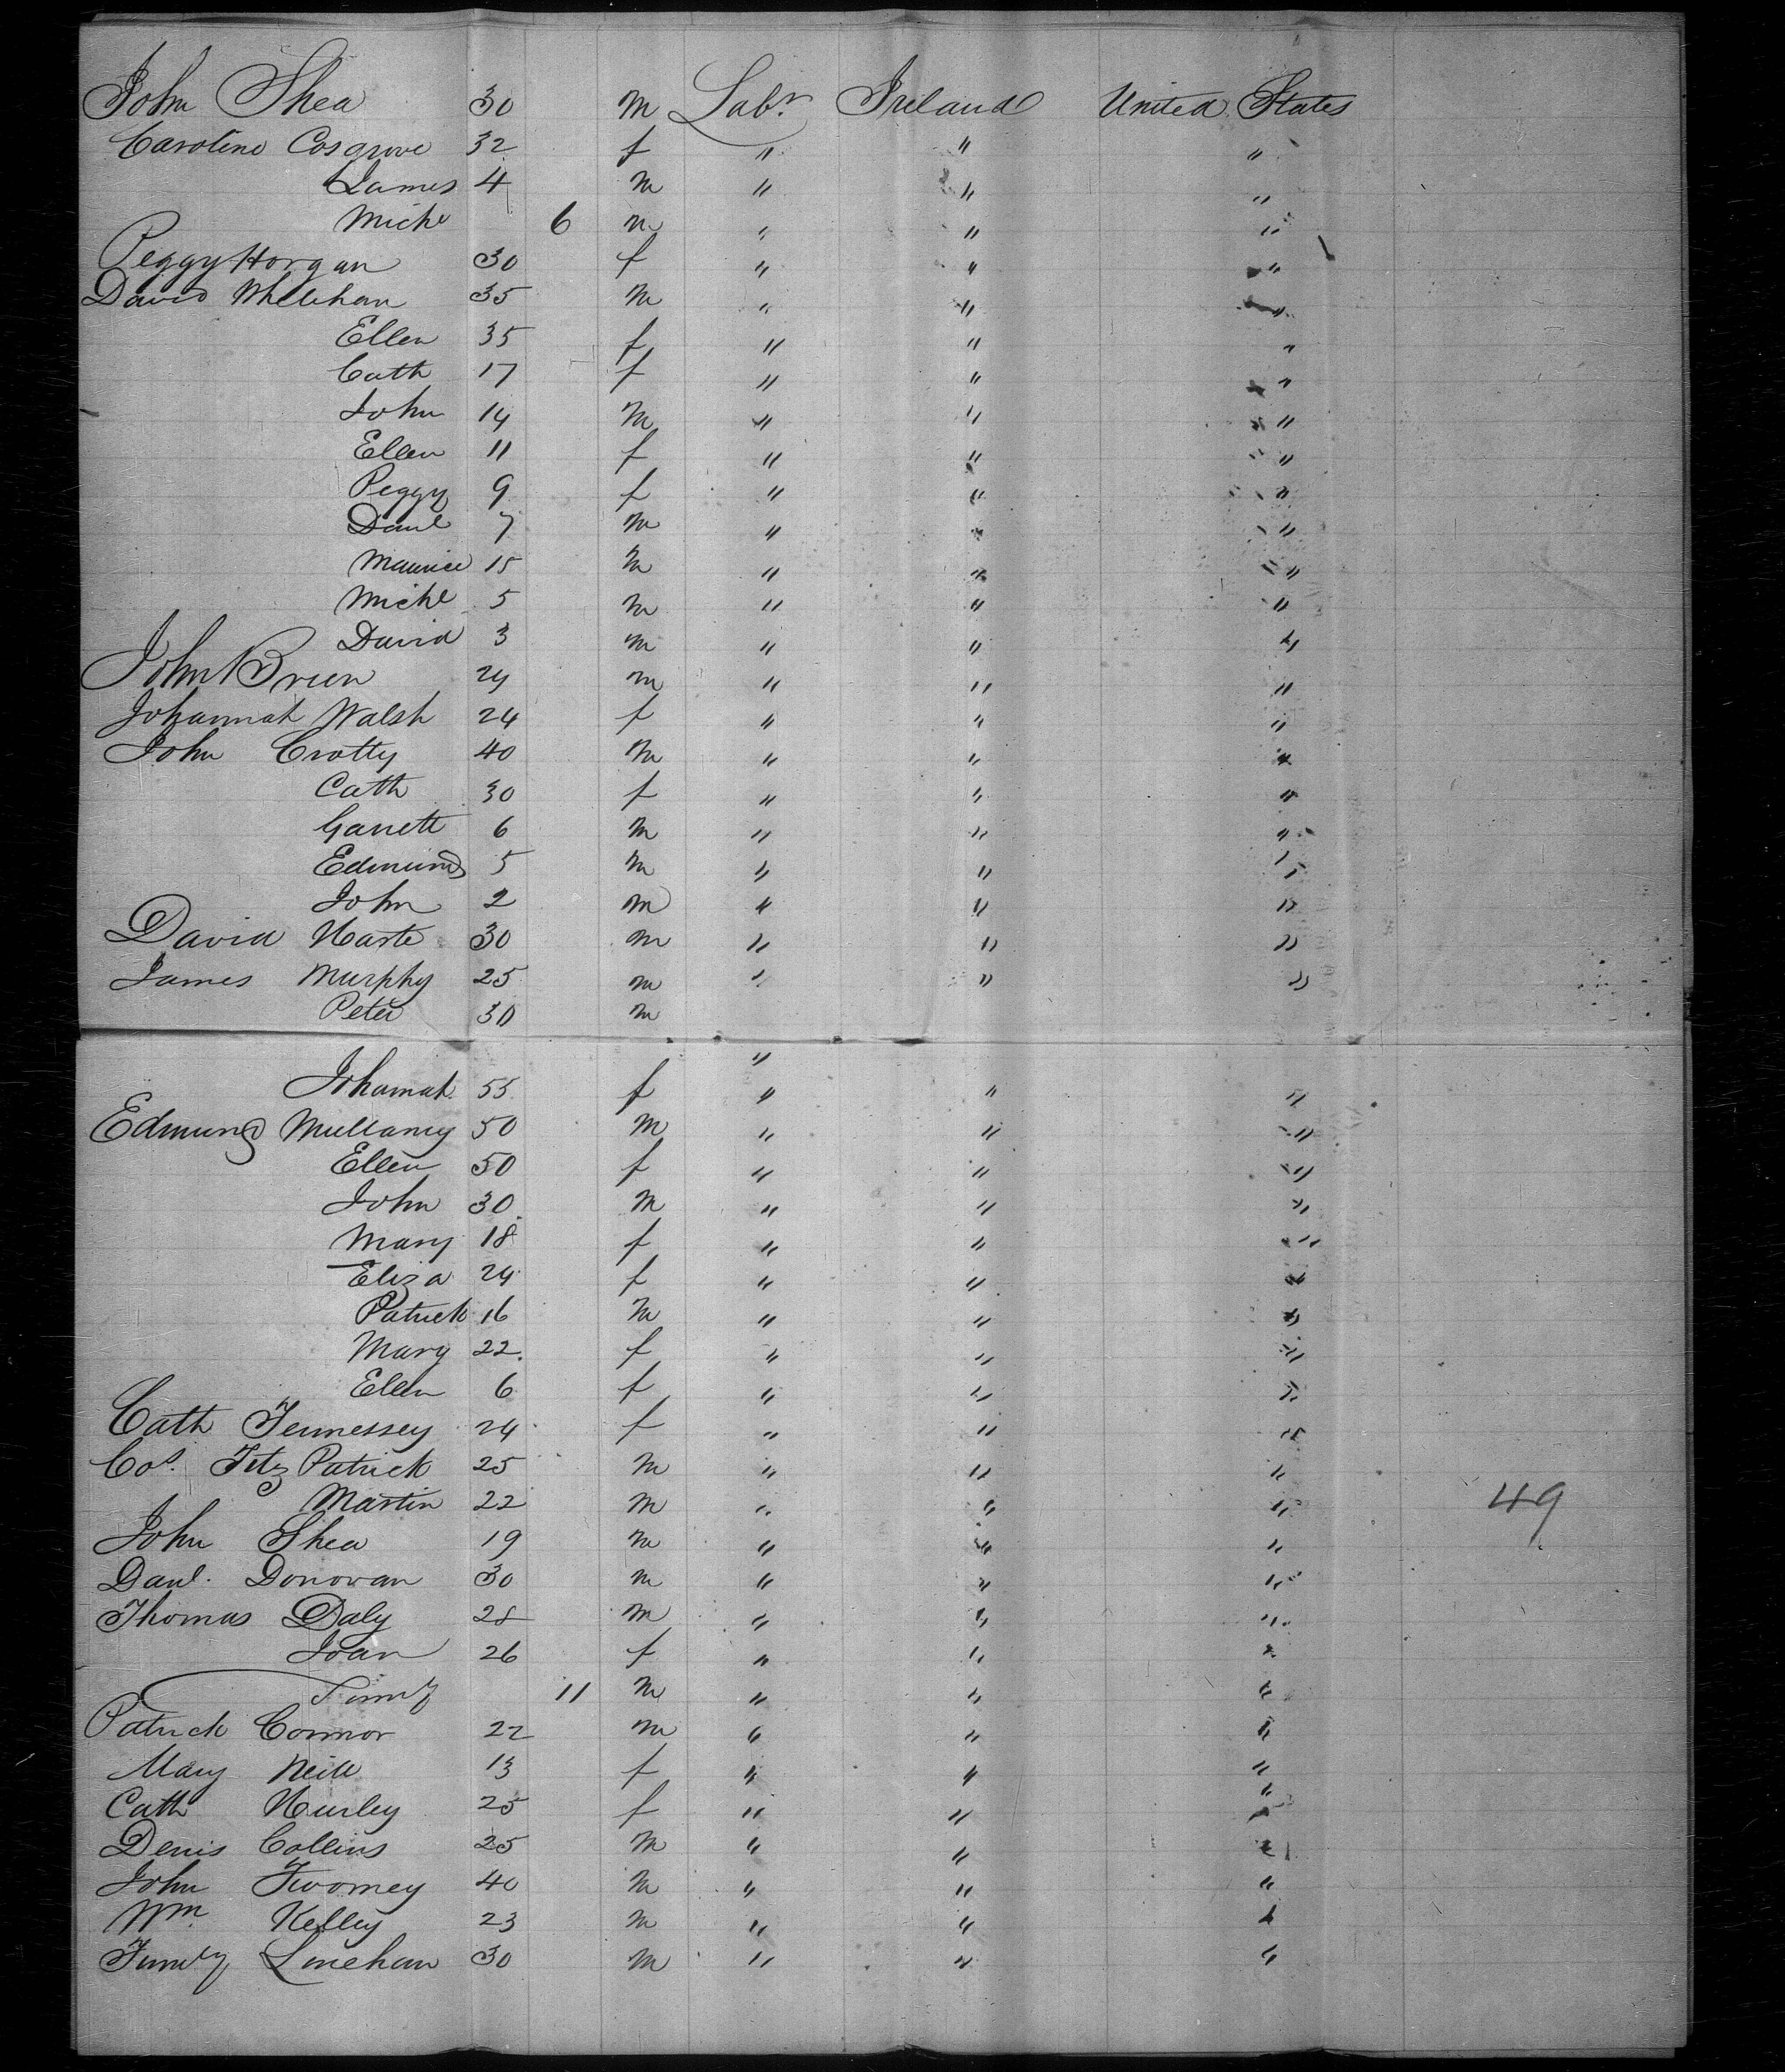 John Shea 30 m Labr Ireland United States
Caroline Cosgrove 32 f " " "
James 4 m " " "
Michl 6 m " " "
Peggy Horgan 30 f " " "
David Whelehan 35 m " " "
Ellen 35 f " " "
Cath 17 f " " "
John 14 m " " "
Ellen 11 f " " "
Peggy 9 f " " "
Danl 7 m " " "
Maurice 15 m " " "
Michl 5 m " " "
David 3 m " " "
John Brien 24 m " " "
Johannah Walsh 24 f " " "
John Crotty 40 m " " "
Cath 30 f " " "
Garrett 6 m " " "
Edmund 5 m " " "
John 2 m " " "
David Harte 30 m " " "
James Murphy 25 m " " "
Peter 30 m
"
Johannah 55 f " " "
Edmund Mullaney 50 m " " "
Ellen 50 f " " "
John 30 m " " "
Mary 18 f " " "
Eliza 24 f " " "
Patrick 16 m " " "
Mary 22 f " " "
Ellen 6 f " " "
Cath Fennessey 24 f " " "
Cos. Fitz Patrick 25 m " " "
Martin 22 m " " " 49
John Shea 19 m " " "
Danl. Donovan 30 m " " "
Thomas Daly 28 m " " "
Joan 26 f " " "
Timy 11 m " " "
Patrick Connor 22 m " " "
Mary Neill 13 f " " "
Cath Hurley 25 f " " "
Denis Collins 25 m " " "
John Twomey 40 m " " "
Wm. Kelley 23 m " " "
Timy Linehan 30 m " " "